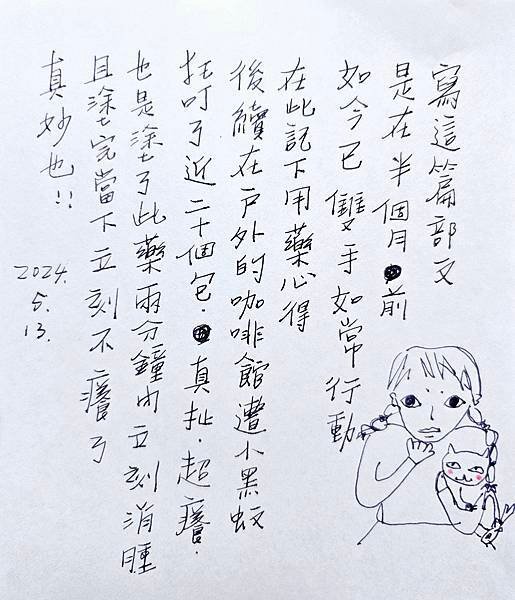 寫這篇部文
是在半個月前
如今已雙手如常行動
在此記下用藥心得
後續在戶外的咖啡館遭小黑蚊
狂叮了近二十個包.真扯.超癢.
也是塗了此藥兩分鐘內立刻消腫
且塗完當下立刻不癢了
真妙也!!
2024.
5.
13.